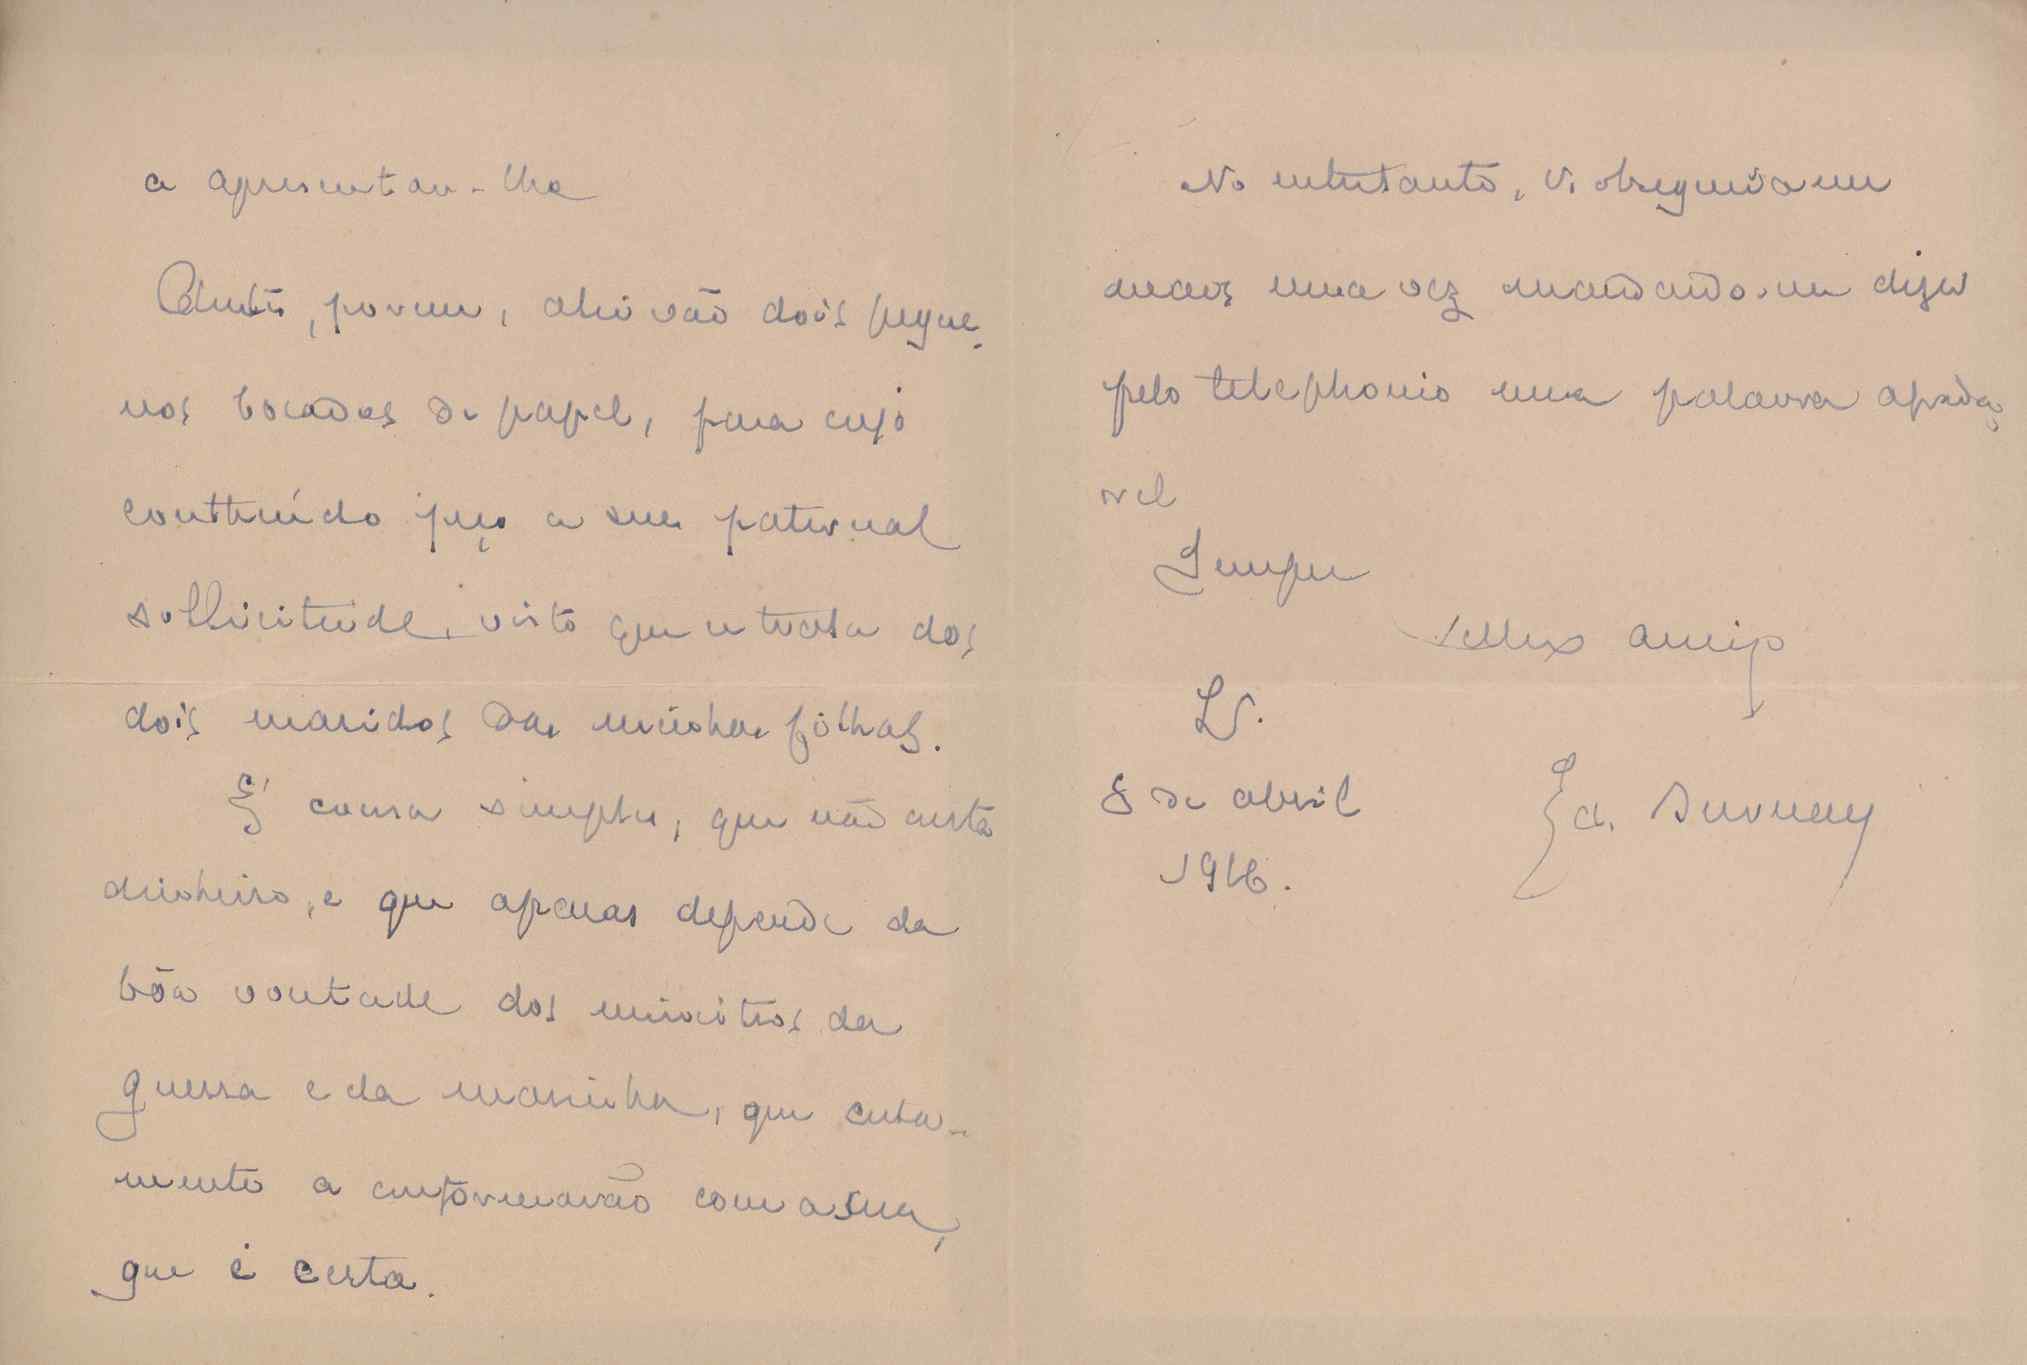 a apresentar-lha
Antes, porem, ahi vão dois peque-
nos bocados de papel, para cujo
conttheúdo peço a sua paternal
sollicitude, visto que se trata dos
dois maridos das minhas filhas.
É cousa simples, que não custa
dinheiro, e que apenas depende da
bôa vontade dos ministros da
guerra e da marinha, que certa-
mente a conformarão com a sua,
que é certa.
No entretanto, V. obsequeia-me
mais uma vez mandando-me dizer
pelo telephonio uma palavra agrada-
vel
Sempre
velho amigo
8 de abril
1916.
Ed. Burnay